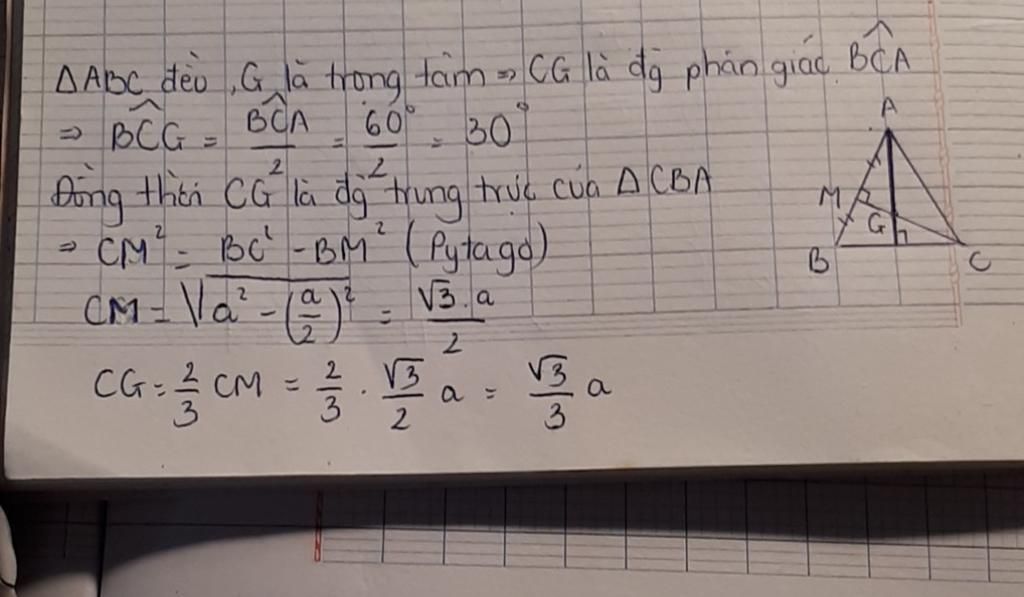 ΔABC đều, G là trọng tâm ⇒ CG là đg phân giác \widehat{BCA}
⇒ \widehat{BCG} = \frac{\widehat{BCA}}{2} = \frac{60°}{2} = 30°
Đồng thời CG là đg trung trực của ΔCBA
⇒ CM² = BC² - BM² (Pytago)
CM = \sqrt{a² - (\frac{a}{2})²} = \frac{√3 . a}{2}
CG = \frac{2}{3} CM = \frac{2}{3} . \frac{√3}{2} a = \frac{√3}{3} a
A
M
G
B
C